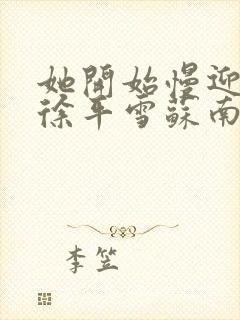 她開始慢迎
徐平雪蘇南
李笠